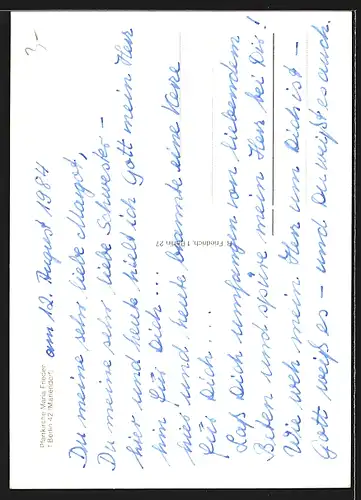 Pfarrkirche Maria Frieden
1 Berlin 42 (Mariendorf)
3,-
am 12. August 1984
Du meine sehr liebe Margot,
Du meine sehr liebe Schwester –
hier und heute hielt ich Gott mein Herz
hin für Dich...
hier und heute brannte eine Kerze
für Dich...
Laß Dich umfangen von liebendem
Beten und spüre mein Herz bei Dir!
Wie weh mein Herz um Dich ist –
Gott weiß es – und Du weißt es auch.
R. Friedrich, 1 Berlin 27